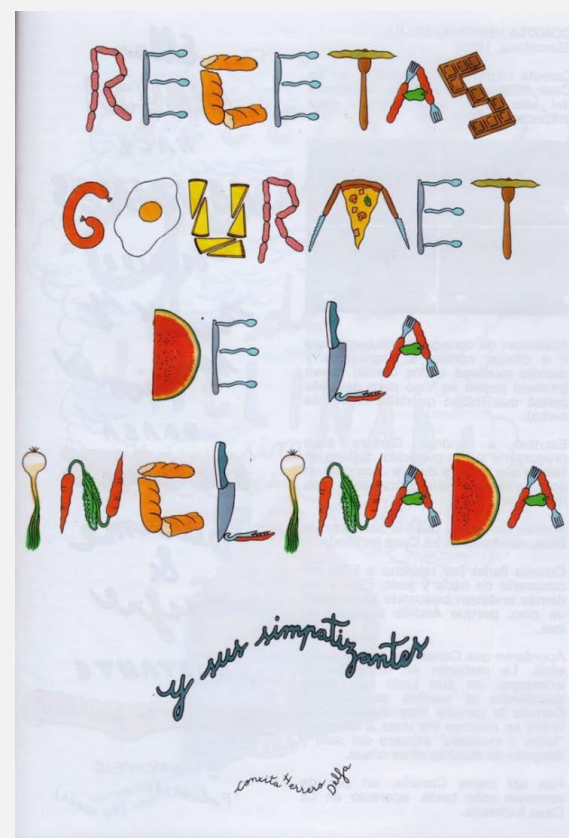 RECETAS
GOURMET
DE LA
INCLINADA
y sus simpatizantes
concita Herrero Delfa